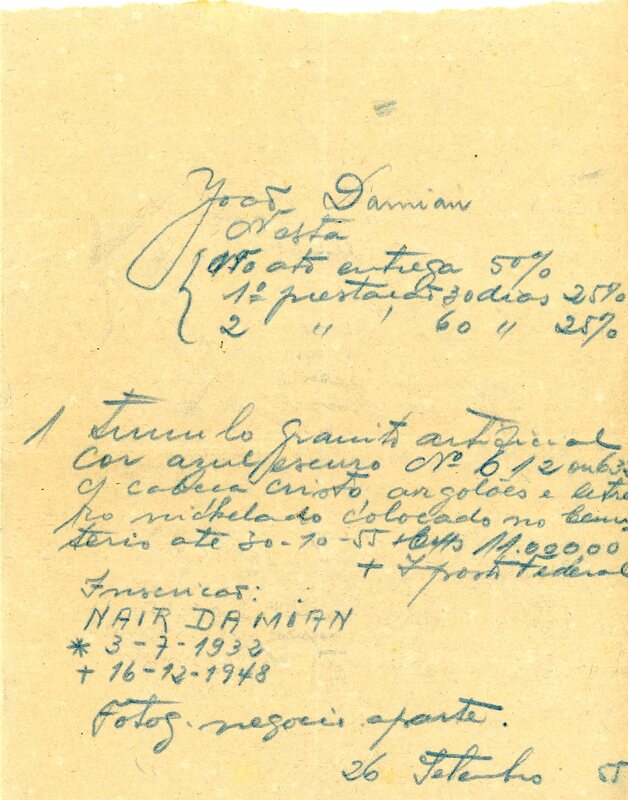 João Damian
Nesta
No ato entrega 50%
1ª prestação 30 dias 25%
2 " ' 60 " 25%
1 Tumulo granito artificial
cor azul escuro Nº 612 ou
c/ cabeca cristo, argolões e letre
iro nichelado colocado no cemi
terio até 30-10-55 11.000,00
+ Federal
Inscricão:
NAIR DAMIAN
* 3-7-1932
+ 16-12-1948
Fotog. negocio aparte.
26 Setembro 55